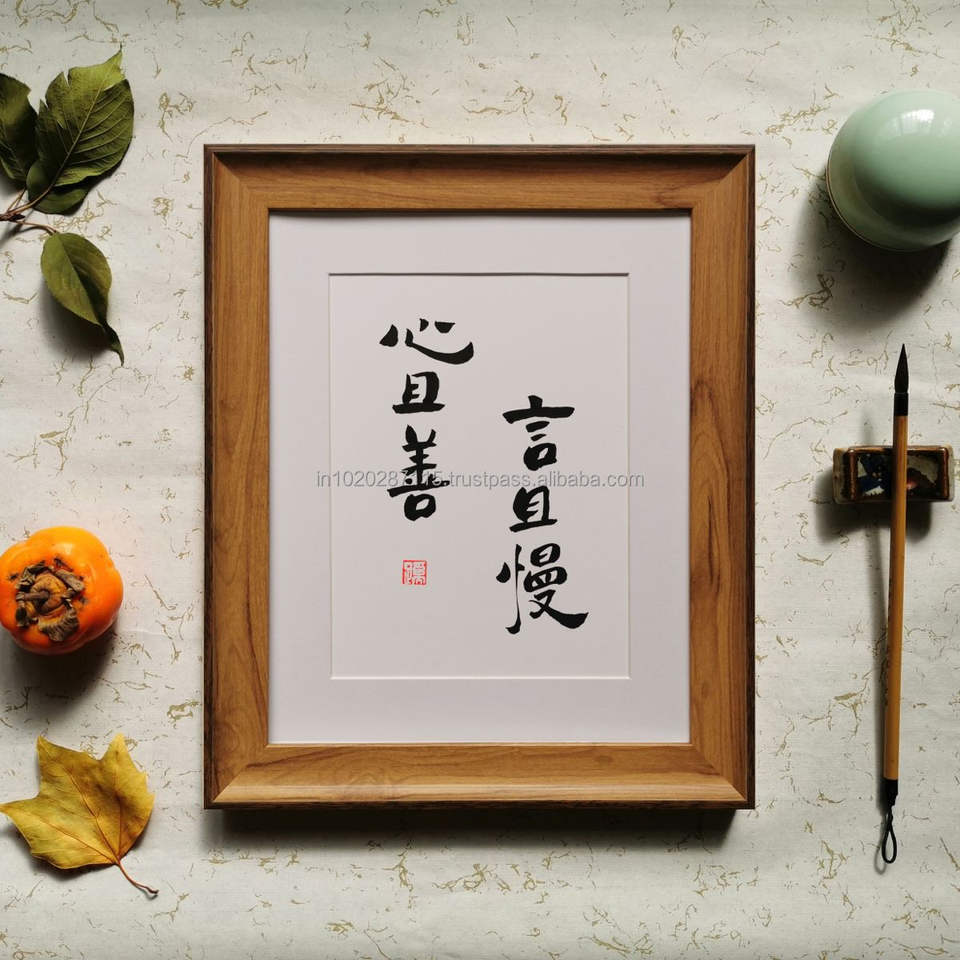 言且慢
心且善
in1020287115.trustpass.alibaba.com